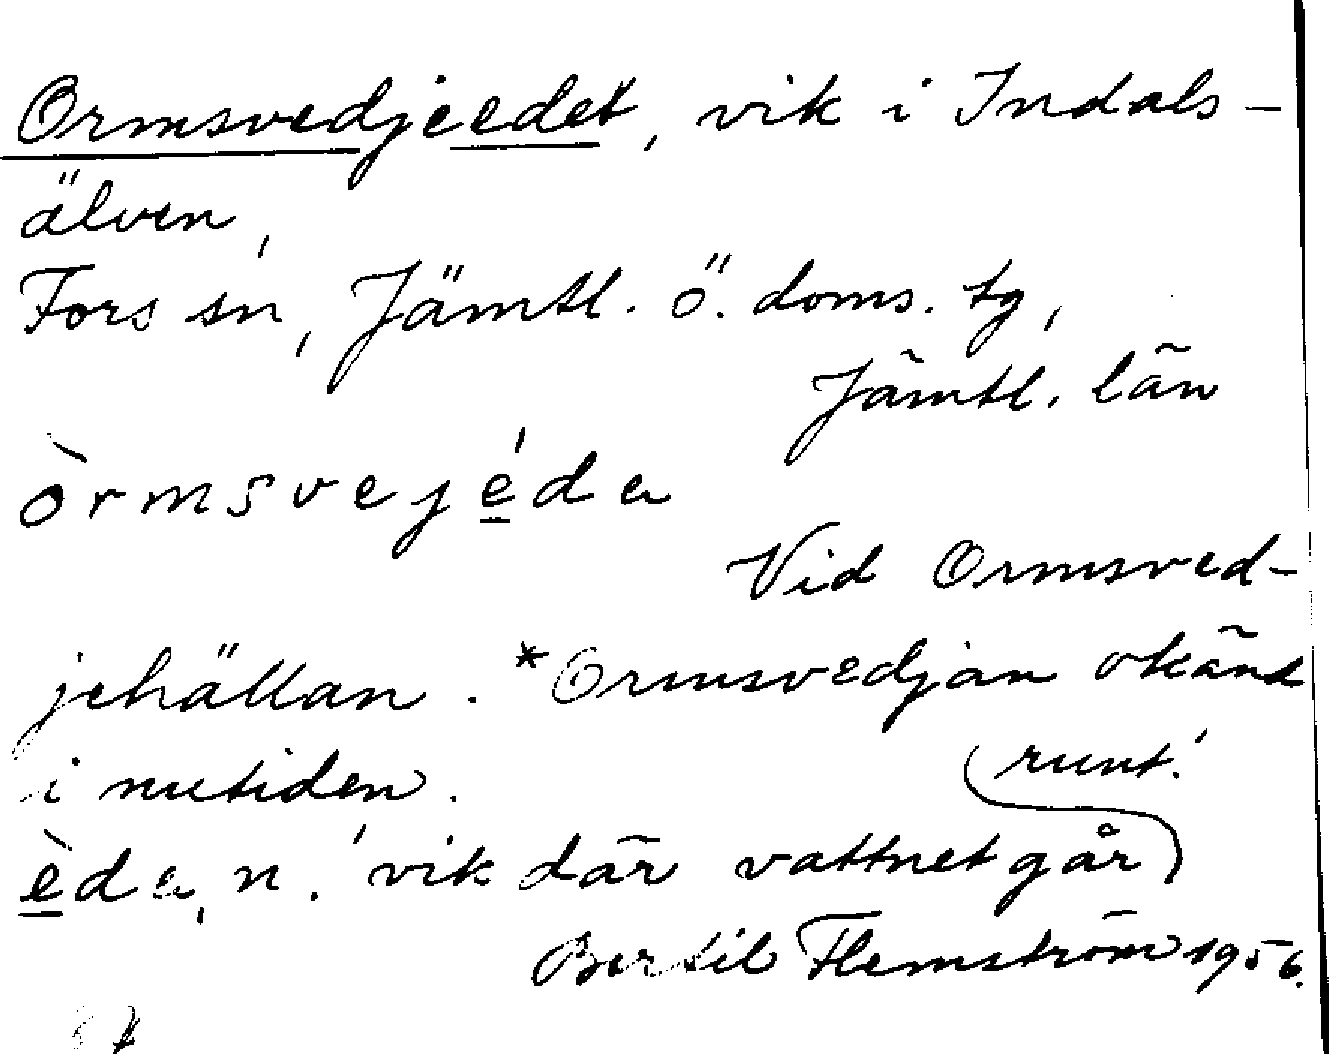 Ormsvedjeedet, vik i Indals-
älven,
Fors sn, Jämtl. ö. doms. tg,
Jämtl. län
òrmsvejéda
Vid Ormsved-
jehällan. *Ormsvedjan okänd
i nutiden.
èda, n. 'vik där vattnet går
runt.'
Bertil Flemström 1956.